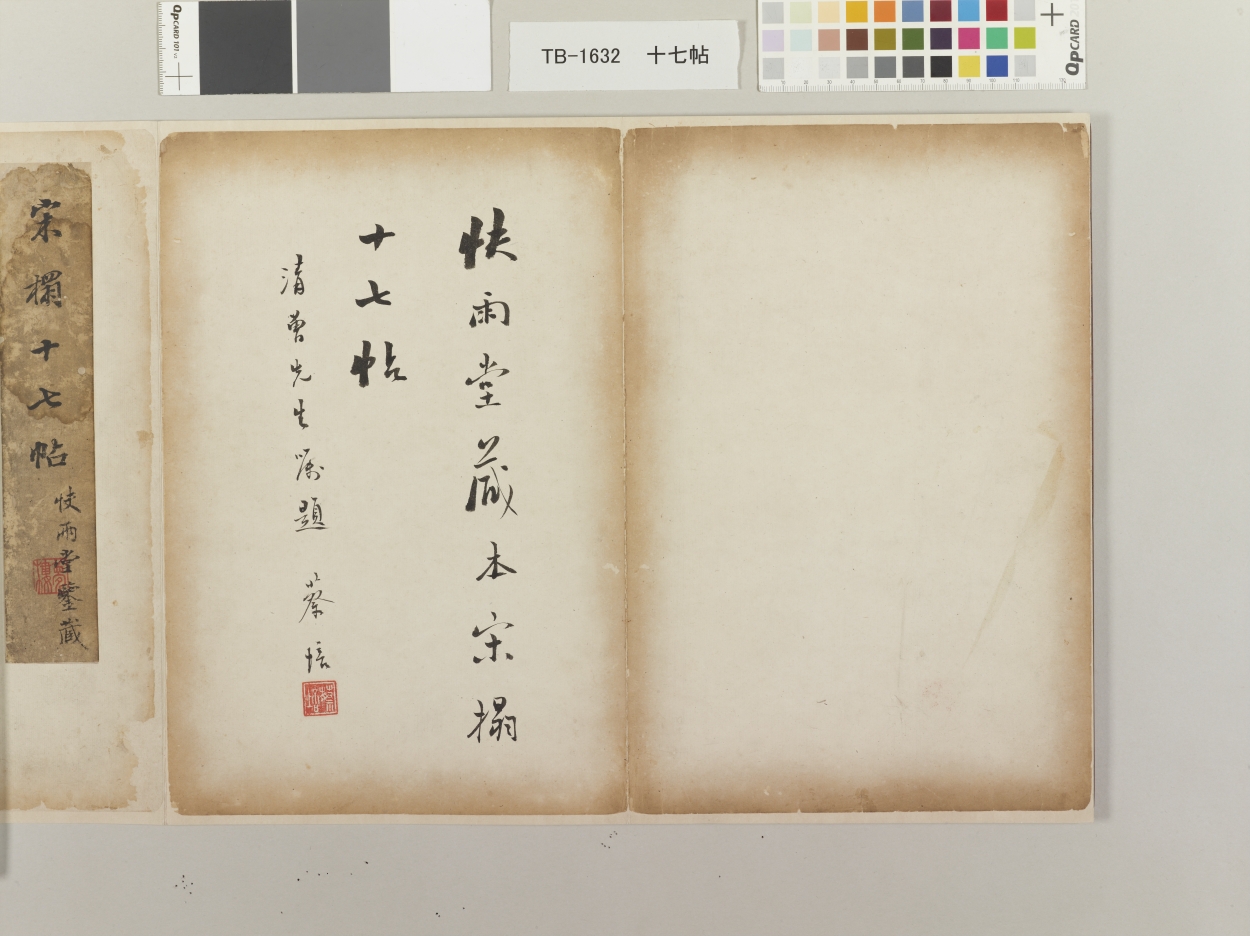 QPCARD 101
TB-1632 十七帖
QPCARD
快雨堂蔵本宋搨
十七帖
清曽先生嘱題 蔡培
宋搨十七帖
快雨堂鑒蔵